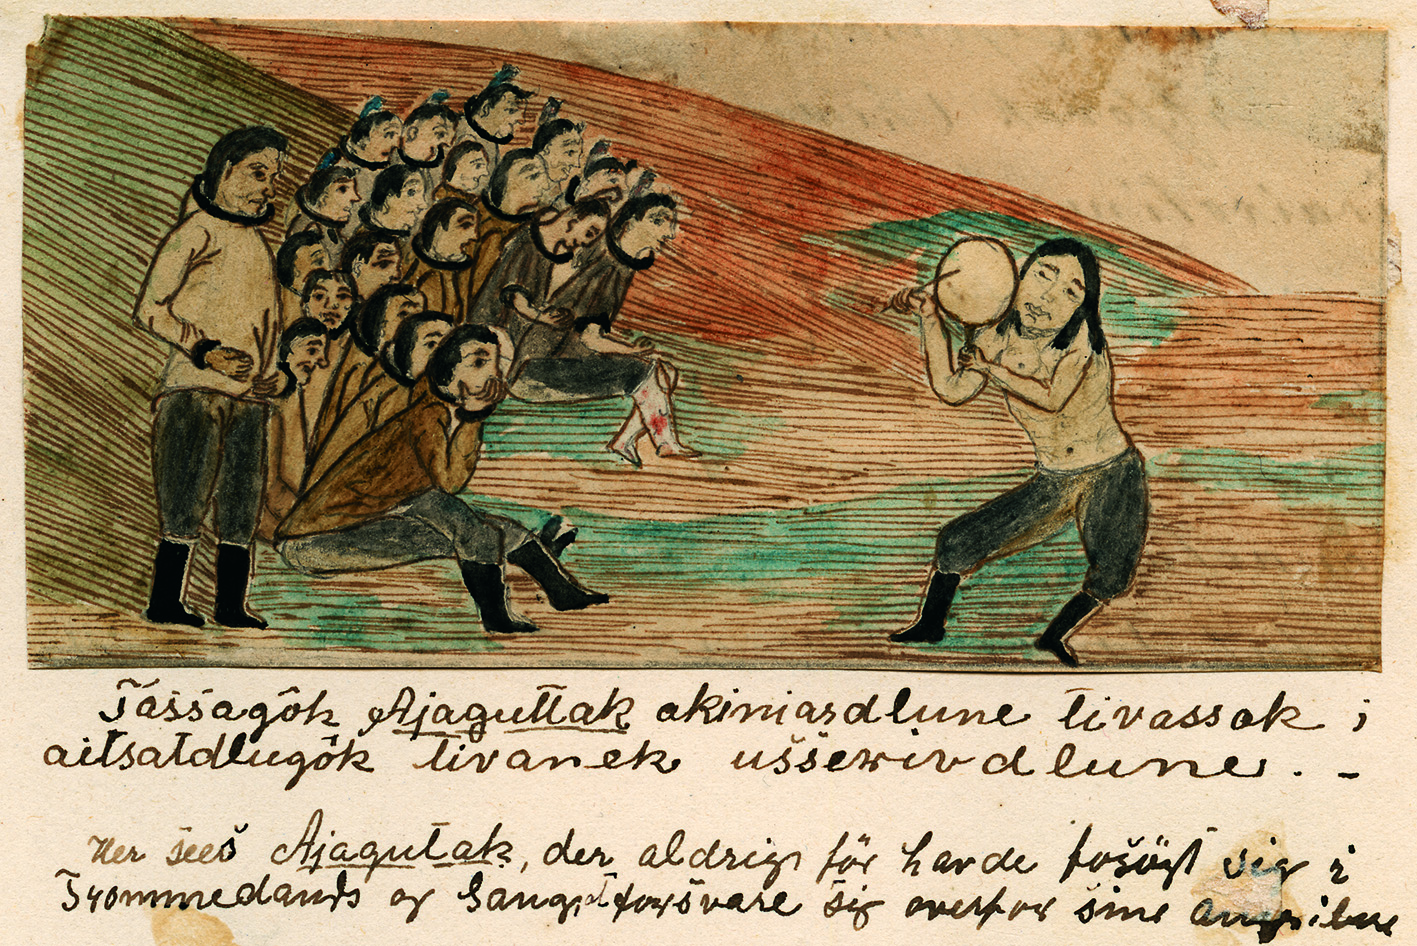 Tássagôk Ajaguttak akiniardlune tivassok i
aitsatdlugôk tivanek ušserivdlune. -
Her sees Ajagutak, der aldrig för havde forsögt sig i
Trommedands og Sang, at forsvare sig overfor sine Angribere